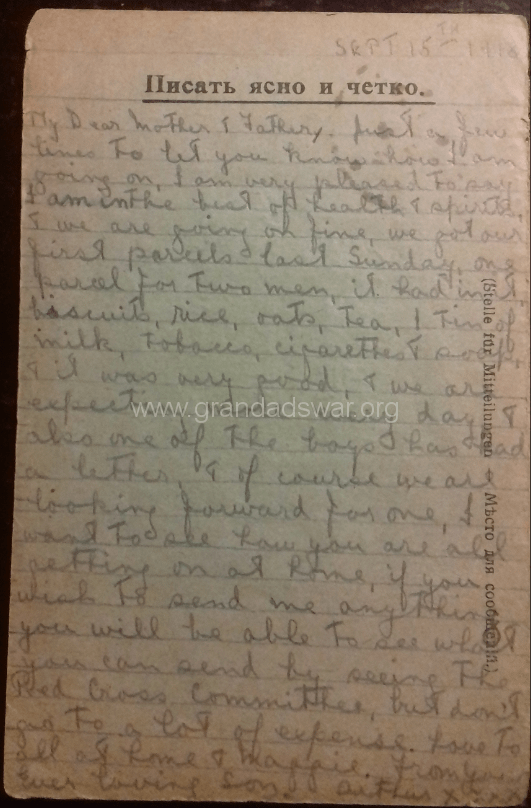 SEPT 15TH 191
Писать ясно и четко.
My Dear Mother & Father, Just a few
lines to let you know how I am
going on, I am very pleased to say
I am in the best of health & spirits,
& we are going on fine, we got our
first parcels last Sunday, one
parcel for two men, it had in it
biscuits, rice, oats, Tea, 1 Tin of
milk, Tobacco, cigarettes & soap,
& it was very good, & we are
expecting day, &
also one of the boys has had
a letter, & of course we are
looking forward for one, I
want to see how you are all
getting on at home, if you
wish to send me anything
you will be able to see what
you can send by seeing the
Red Cross Committee, but don't
go to a lot of expense. Love to
all at home & Maggie. From your
Ever loving Son. Arthur x x x
(Stelle für Mitteilungen — Мѣсто для сообщенія.)
www.grandadswar.org